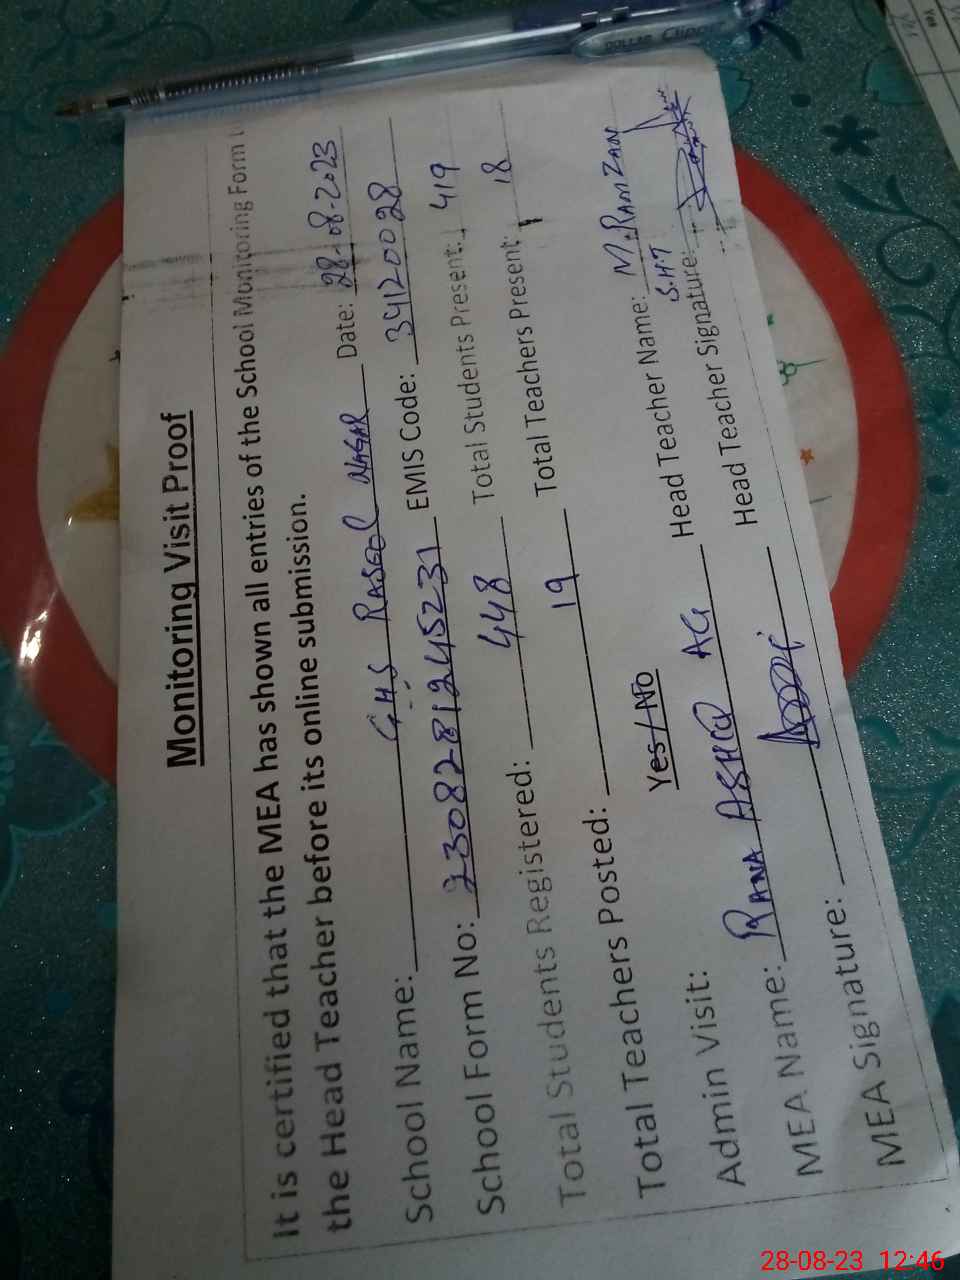 DOLLAR Clipper
Yes
Monitoring Visit Proof
It is certified that the MEA has shown all entries of the School Monitoring Form
the Head Teacher before its online submission.
School Name: G.H.S RASOOL NAGAR Date: 28-08-2023
School Form No: 23082812245231 EMIS Code: 34120028
Total Students Registered: 448 Total Students Present: 419
Total Teachers Posted: 19 Total Teachers Present 18
Admin Visit: Yes/No
MEA Name: RANA ASHFAQ Head Teacher Name: M.RAMZAN
S.H.T
MEA Signature: Head Teacher Signature:
28-08-23 12:46